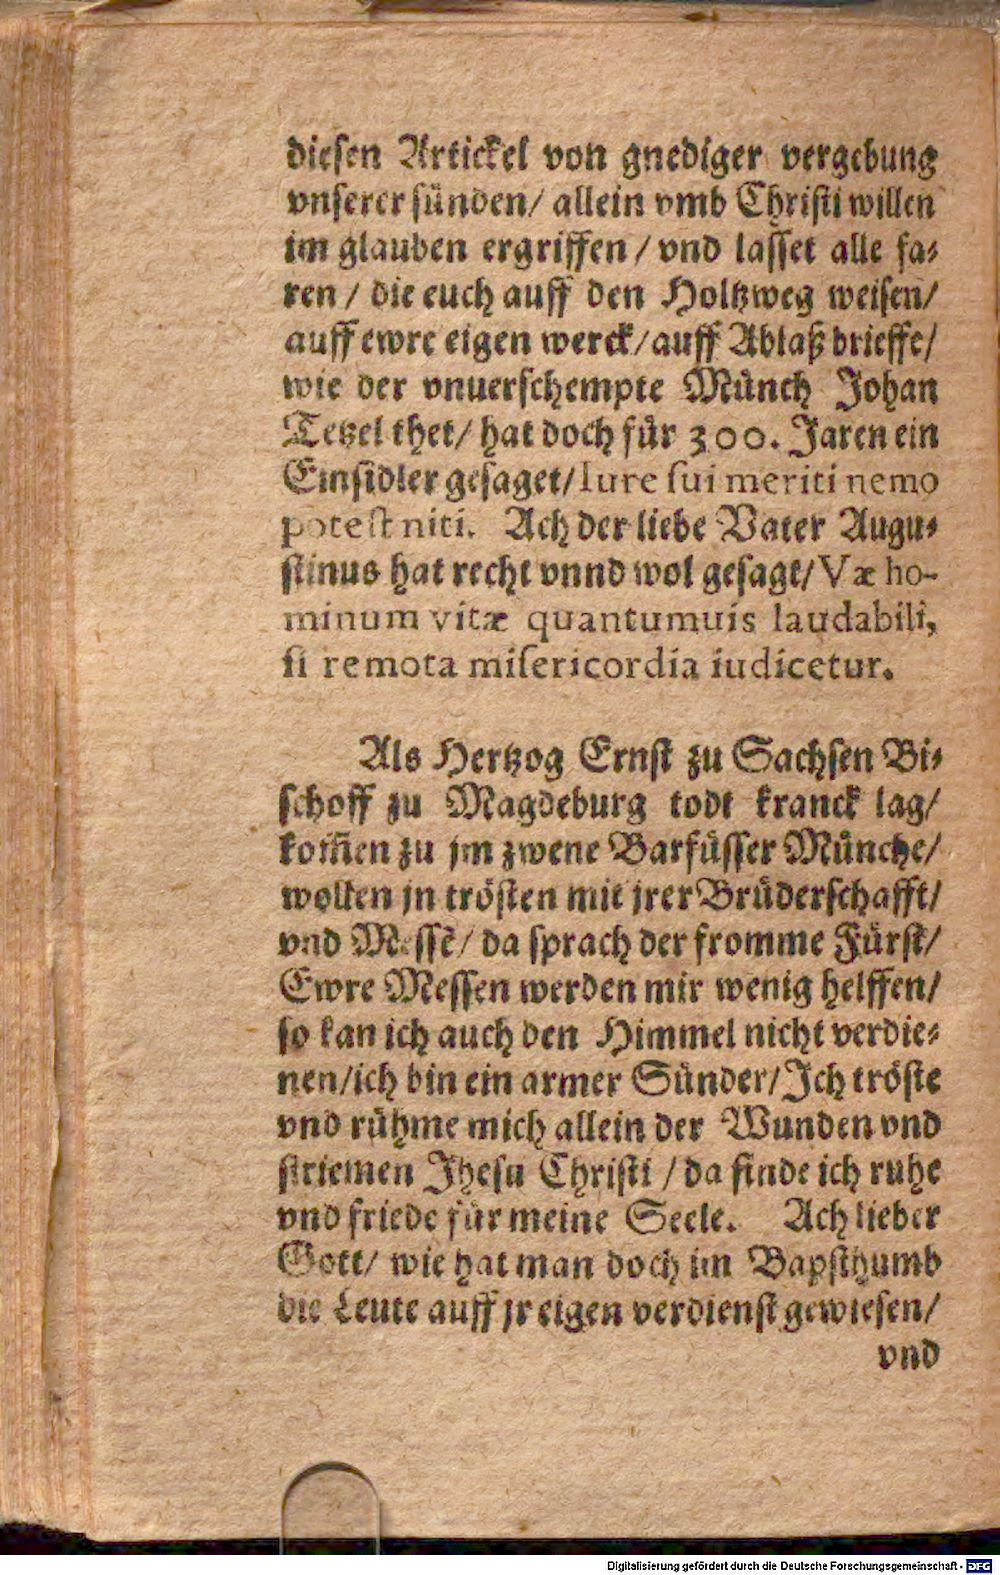 diesen Artickel von gnediger vergebung
vnserer sünden/ allein vmb Christi willen
im glauben ergriffen / vnd lasset alle fa⸗
ren / die euch auff den Holtzweg weisen/
auff ewre eigen werck/ auff Ablaß brieffe/
wie der vnuerschempte Münch Johan
Tetzel thet/ hat doch für 300. Jaren ein
Einsidler gesaget/ Iure sui meriti nemo
potest niti. Ach der liebe Vater Augu⸗
stinus hat recht vnnd wol gesagt/ Væ ho-
minum vitæ quantumuis laudabili,
si remota misericordia iudicetur.
Als Hertzog Ernst zu Sachsen Bi⸗
schoff zu Magdeburg todt kranck lag/
kom̃en zu jm zwene Barfüsser Münche/
wolten jn trösten mit jrer Brüderschafft/
vnd Messẽ/ da sprach der fromme Fürst/
Ewre Messen werden mir wenig helffen/
so kan ich auch den Himmel nicht verdie⸗
nen/ ich bin ein armer Sünder/ Ich tröste
vnd rühme mich allein der Wunden vnd
striemen Jhesu Christi / da finde ich ruhe
vnd friede für meine Seele. Ach lieber
Gott/ wie hat man doch im Bapsthumb
die Leute auff jr eigen verdienst gewiesen/
vnd
Digitalisierung gefördert durch die Deutsche Forschungsgemeinschaft - DFG